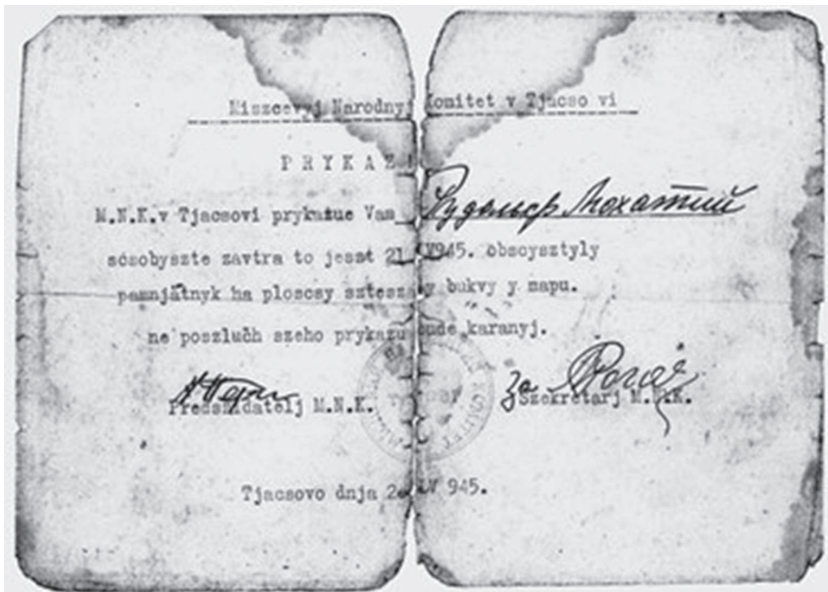 Miszcevyj Narodnyj Komitet v Tjacso vi
PRYKAZ!
M.N.K.v Tjacsovi prykazue Vam
scsobyszte zavtra to jeszt 21 945. obscysztyly
pamnjátnyk na ploscsy bukvy y mapu.
ne poszluch szeho prykazu bude karanyj.
Predszidatelj M.N.K.
За
Szekretarj M.N.K.
КОМИТЕТ
Tjacsovo dnja 2 IV 945.